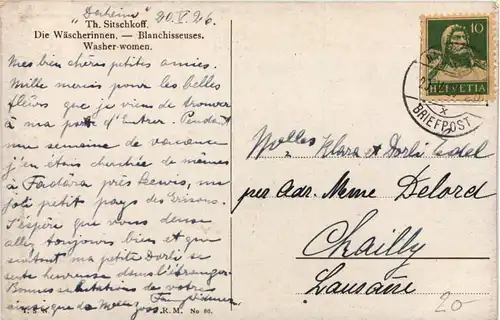 "Daheim" 20.V.26.
Th. Sitschkoff.
Die Wäscherinnen. — Blanchisseuses.
Washer-women.
Mes bien chères petites amies.
Mille mercis pour les belles
fleurs que je viens de trouver
à ma porte d'Entrée. Pendant
une semaine de vacance
j'en étais cherchée de mêmes
à Fadära près Seewis, un
joli petit pays des Grisons.
J'espère que vous deux
allez toujours bien et que
surtout ma petite Dorli se
sente heureuse dans l'étranger.
Bonnes salutations de votre
ainsi que de
T. S. N. R. M. No 60.
10
HELVETIA
BRIEFPOST
Melles Klara et Dorli Edel
per Adr. Mme Delord
Chailly
Lausanne
20